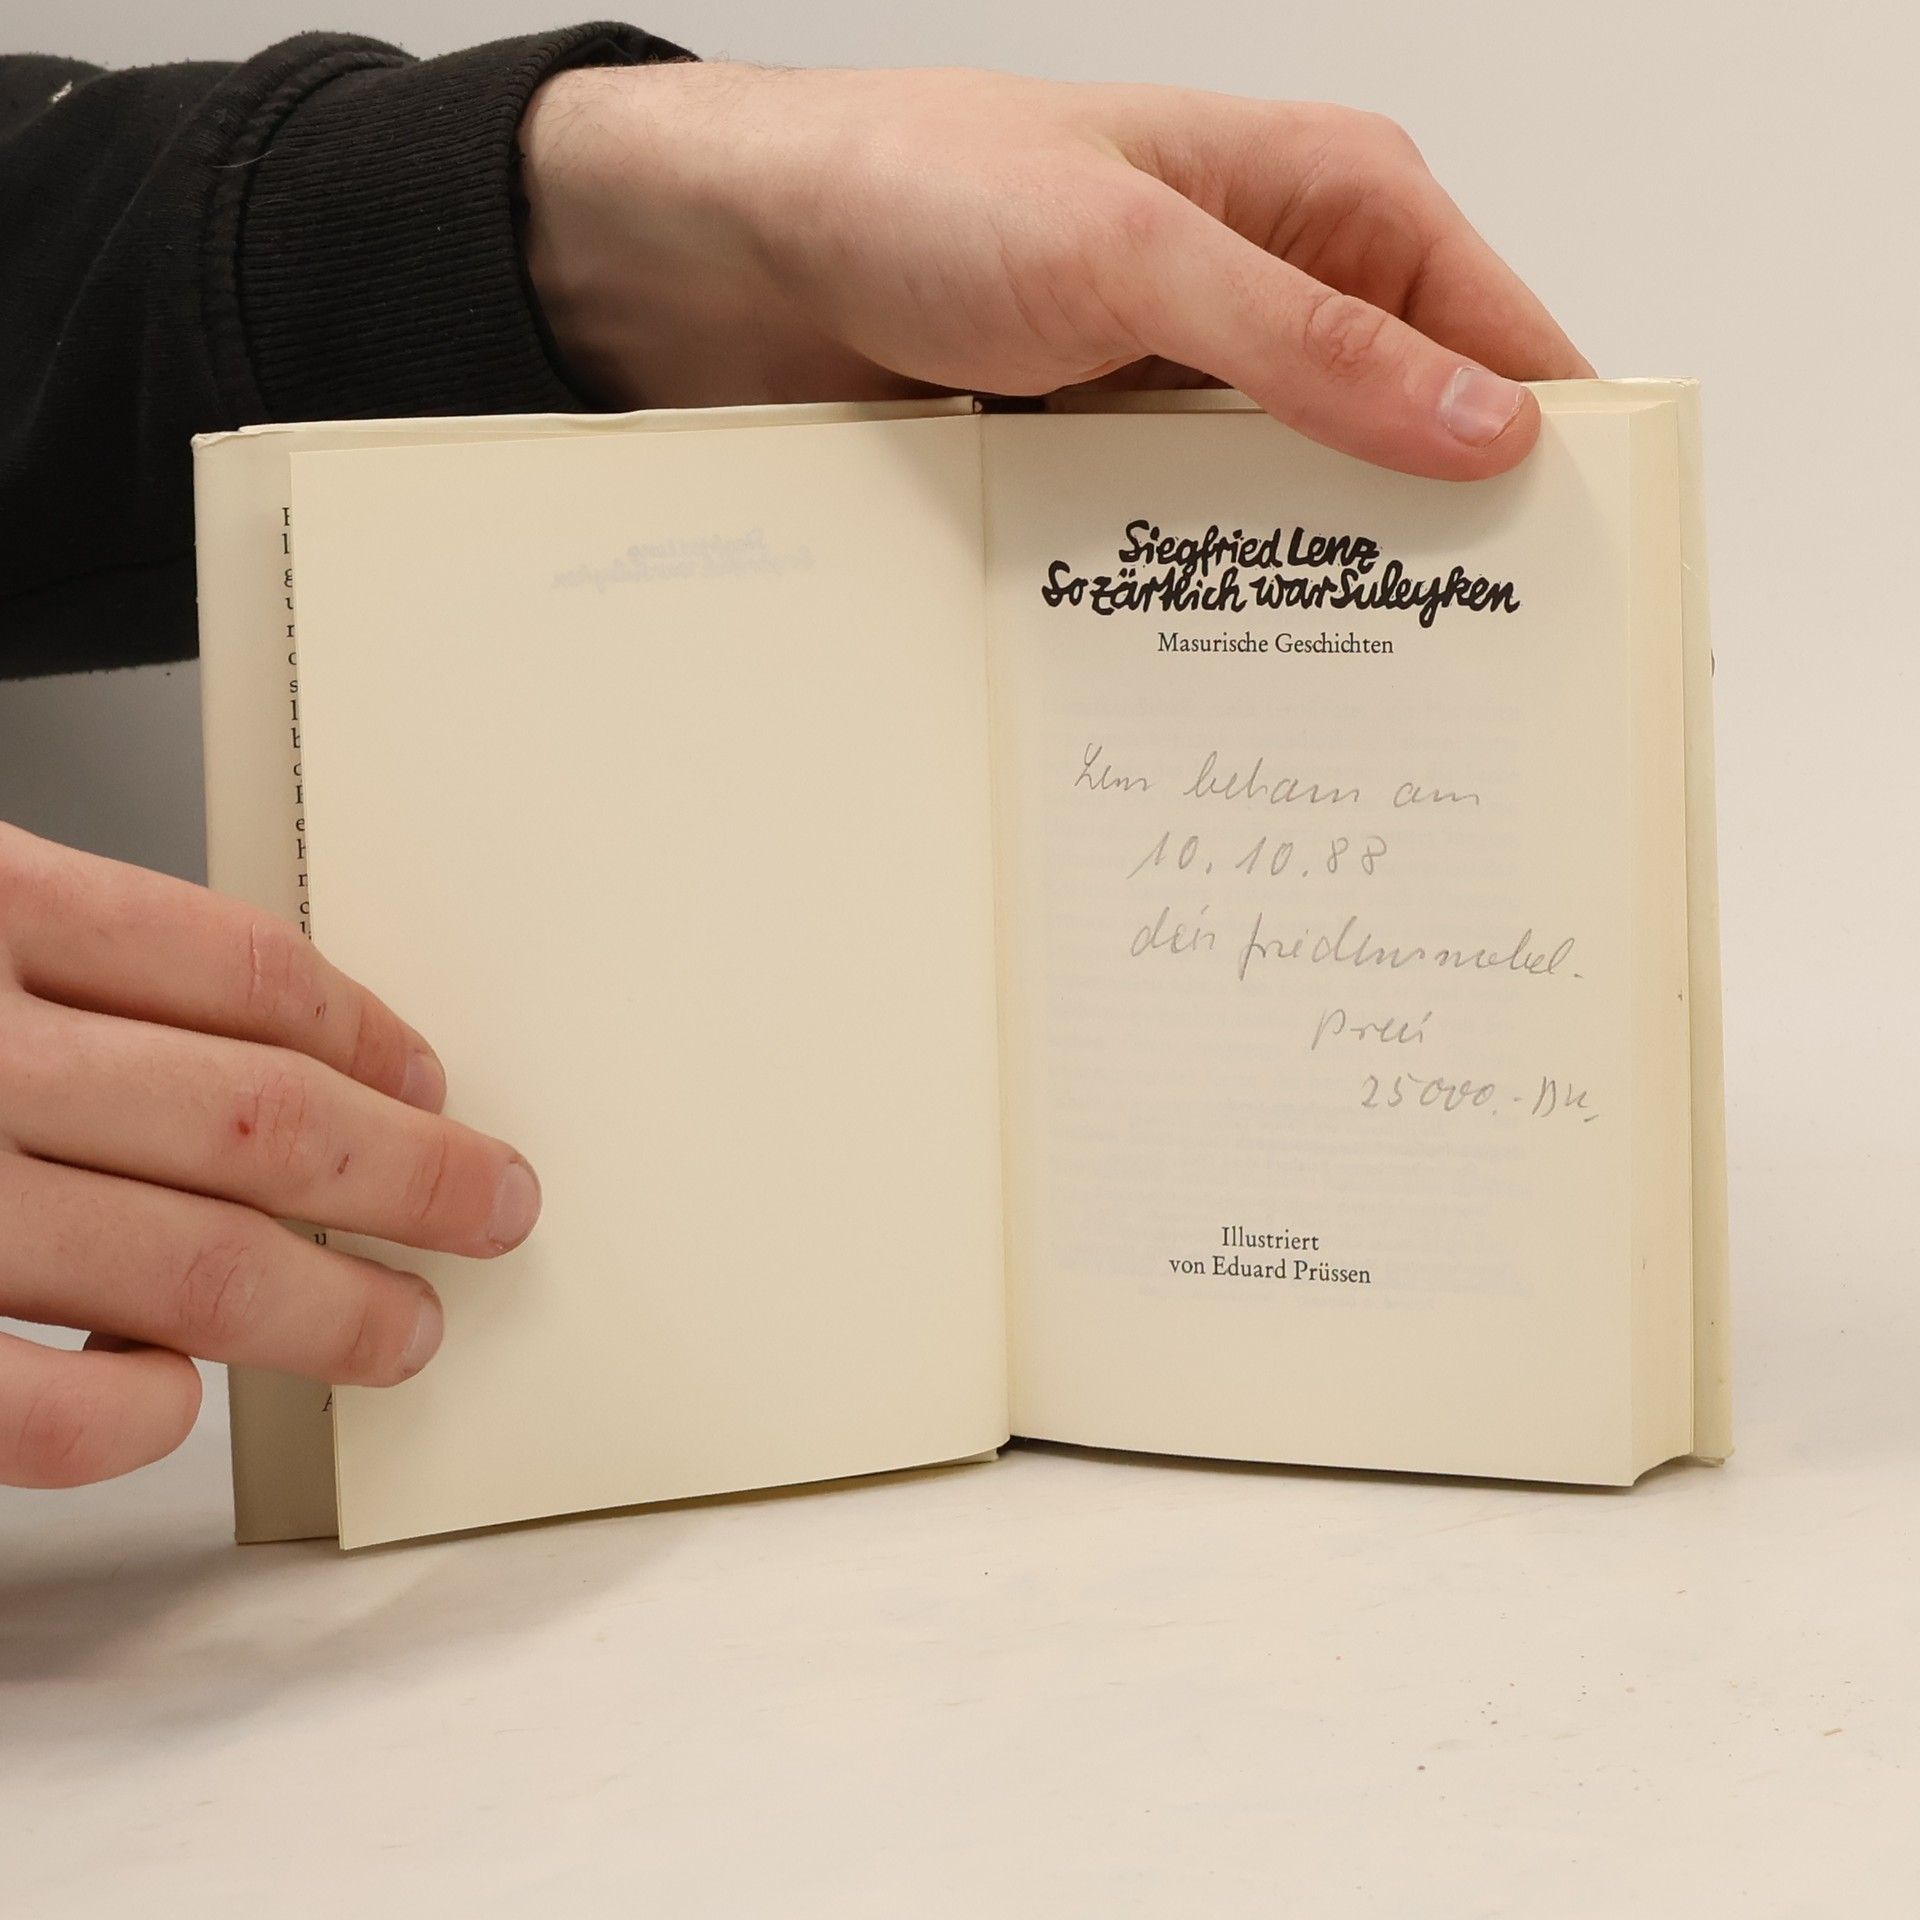 Siegfried Lenz
So zärtlich war Suleyken
Masurische Geschichten
Lenz bekam am
10.10.88
den friedensnobel-
Preis
25000.- DM
Illustriert
von Eduard Prüssen